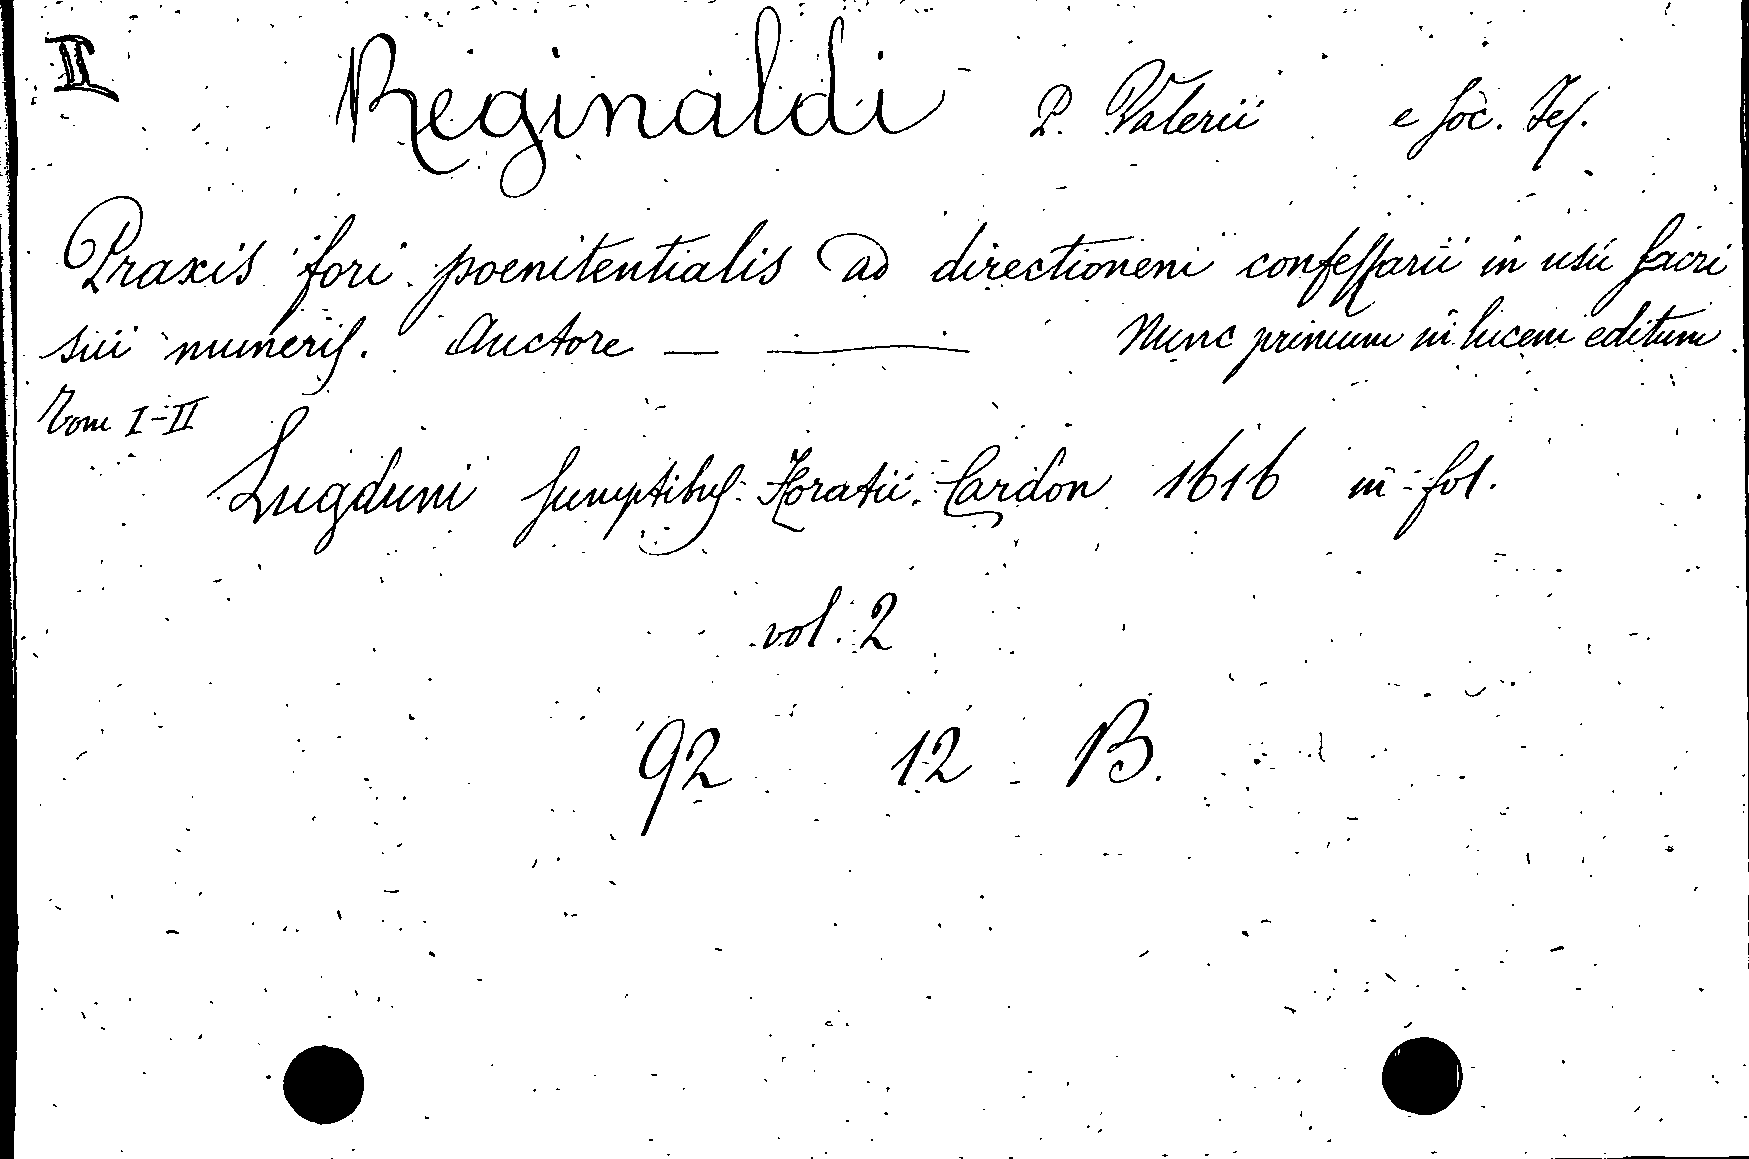 II Reginaldi P. Valerii e Soc. Jes.
Praxis fori poenitentialis ad directionem confessarii in usu sacri
sui muneris. Auctore — —— Nunc primum in lucem editum
Tom I-II
Lugduni sumptibus Horatii Cardon 1616 in fol.
vol. 2
92 12 B.